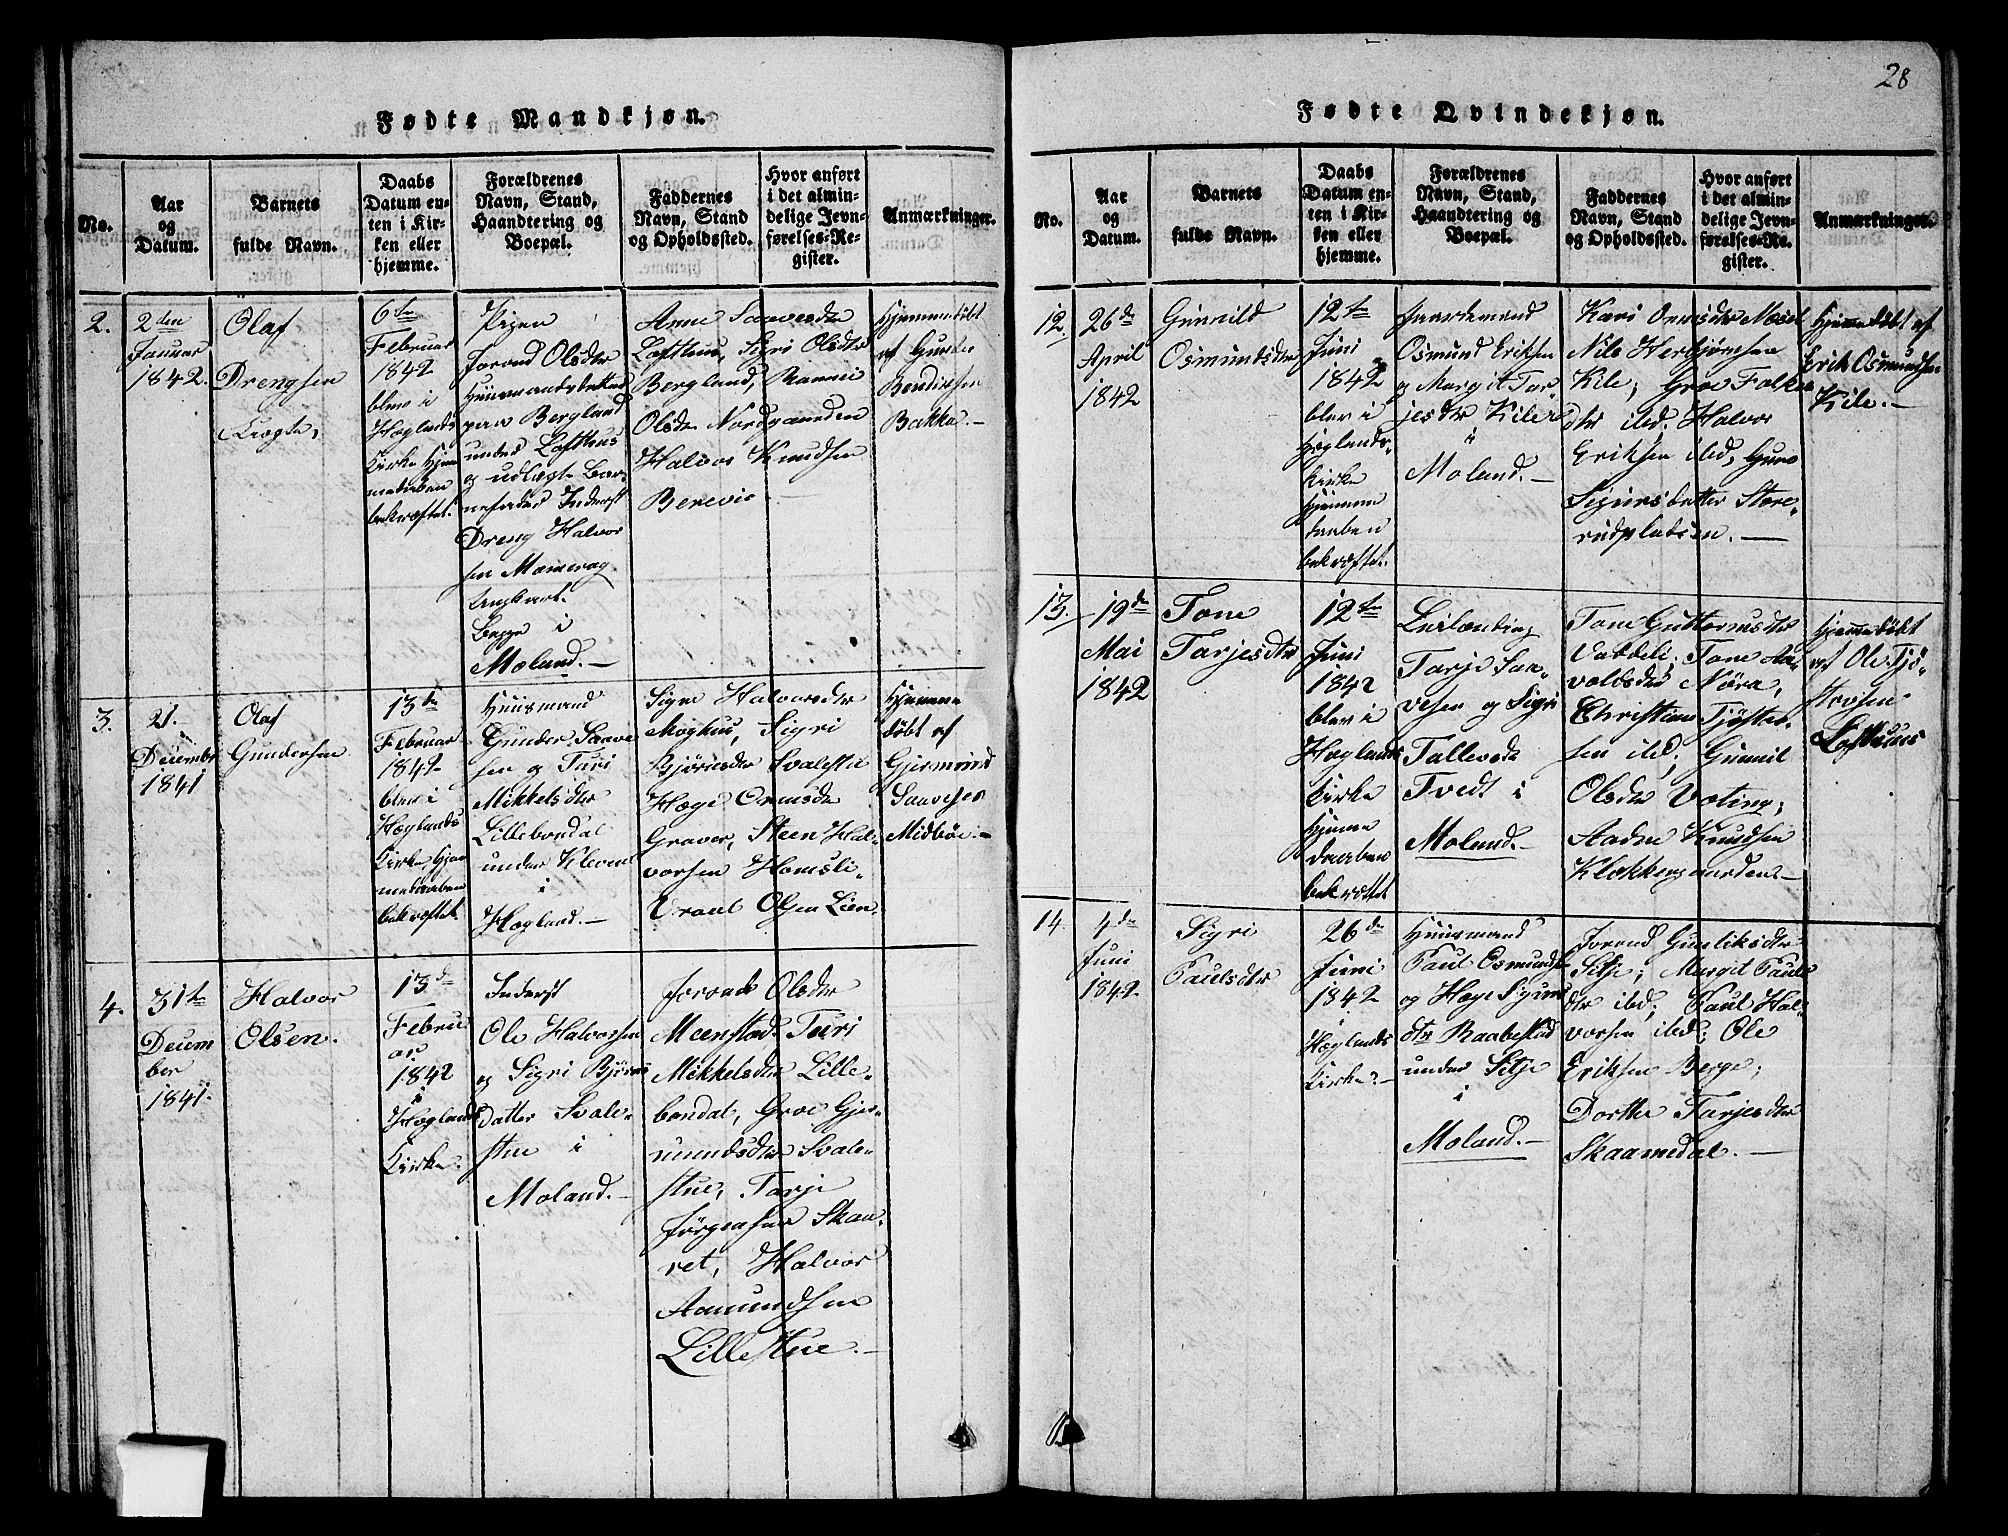 28
Fødte Mandkjøn.
No.
Aar
og
Datum.
Barnets
fulde Navn.
Daabs
Datum en-
ten i Kir-
ken eller
hjemme.
Forældrenes
Navn, Stand,
Haandtering og
Boepæl.
Faddernes
Navn, Stand
og Opholdssted.
Hvor anført
i det almin-
delige Jevn-
førelses-Re-
gister.
Anmærkninger.
2.
2den
Januar
1842.
Olaf
Drengsen
6te
Februar
1842
blev i
Høglands
Kirke Hjem
medaaben
bekræftet.
Pigen
Jorand Olsdtr
paa Bergland
under Lofthus
og udlagt Bar-
nefader Inderst
Dreng Halvor
sen
Begge i
Moland.-
Anne Saavesdtr
Lofthus, Sigri Olsdtr
Bergland,
Olsdtr Nordgaarden
Halvor Knudsen
Berevic
Hjemmedøbt
af Gunder
Bendixsen
Bakke.-
3.
21.
December
1841
Olaf
Gundersen
13de
Februar
1842
blev i
Høglands
Kirke Hjem
medaaben
bekræftet.
Huusmand
Gunder Saave
sen og Turi
Mikkelsdtr
Lillebondal
under Kleven
i
Høgland.-
Signe Halvorsdtr
Moghus, Sigri
Bjørnsdtr Svalestu
Hæge Ormsdtr
Graver, Steen Hal-
vorsen Homsli-
Olsen Lien.
Hjemme
døbt af
Gjermund
Saavesen
Midbøe.-
4.
31te
Decem
ber
1841.
Halvor
Olsen.
13de
Febru
ar
1842
i
Høglands
Kirke.
Inderst
Ole Halvorsen
og Sigri Bjørns
datter Svale-
stue i
Moland.-
Jorand Olsdtr
Meenstad, Turi
Mikkelsdtr Lille-
bondal, Groe Gjer-
mundsdtr Svale-
stue, Tarje
Jørgensen Skaa-
ret, Halvor
Aamundsen
Lillestue.-
Fødte Qvindekjøn.
No.
Aar
og
Datum.
Barnets
fulde Navn.
Daabs
Datum en-
ten i Kir-
ken eller
hjemme.
Forældrenes
Navn, Stand,
Haandtering og
Boepæl.
Faddernes
Navn, Stand
og Opholdssted.
Hvor anført
i det almin-
delige Jevn-
førelses-Re-
gister.
Anmærkninger.
12.
26de
April
1842
Gunnild
Osmundsdtr
12te
Juni
1842
blev i
Høglands-
Kirke
Hjemme
daaben
bekræftet.
Gaardemand
Osmund Eriksen
og Margit Tar-
jesdtr Kile
i
Moland.-
Kari Ormsdtr
Nils Herbjørnsen
Kile; Groe Folke
dtr ibd. Halvor
Eriksen ibd; Guro
Sigursdatter Store-
rudpladsen.-
Hjemmedøbt af
Erik Osmundsen
Kile.-
13.
19de
Mai
1842
Tone
Tarjesdtr
12te
Juni
1842
blev i
Høglands
Kirke
Hjemme
daaben
bekræftet
Leilænding
Tarje Saa-
vesen og Sigri
Tallevsdtr
Tvedt i
Moland.-
Tone Guttormsdtr
Vatdeli; Tone Aa-
Nøra,
Christian Tjøster-
sen ibd; Gunnil
Olsdtr Voting;
Aadne Knudsen
Klokkergaarden.-
Hjemmedøbt
af Ole Tjø-
stovsen
Lofthuus
14.
4de
Juni
1842
Sigri
Paulsdtr
26de
Juni
1842
i
Høglands
Kirke.-
Huusmand
Paul Osmunds
og Hæge Sigurs
dtr Raabestad
under Silje
i
Moland.-
Jorand Gunliksdtr
Silje; Margit Pauls
dtr ibd; Paul Hal-
vorsen ibd; Ole
Eriksen Berge;
Dorthe Tarjesdtr
Skaamedal.-